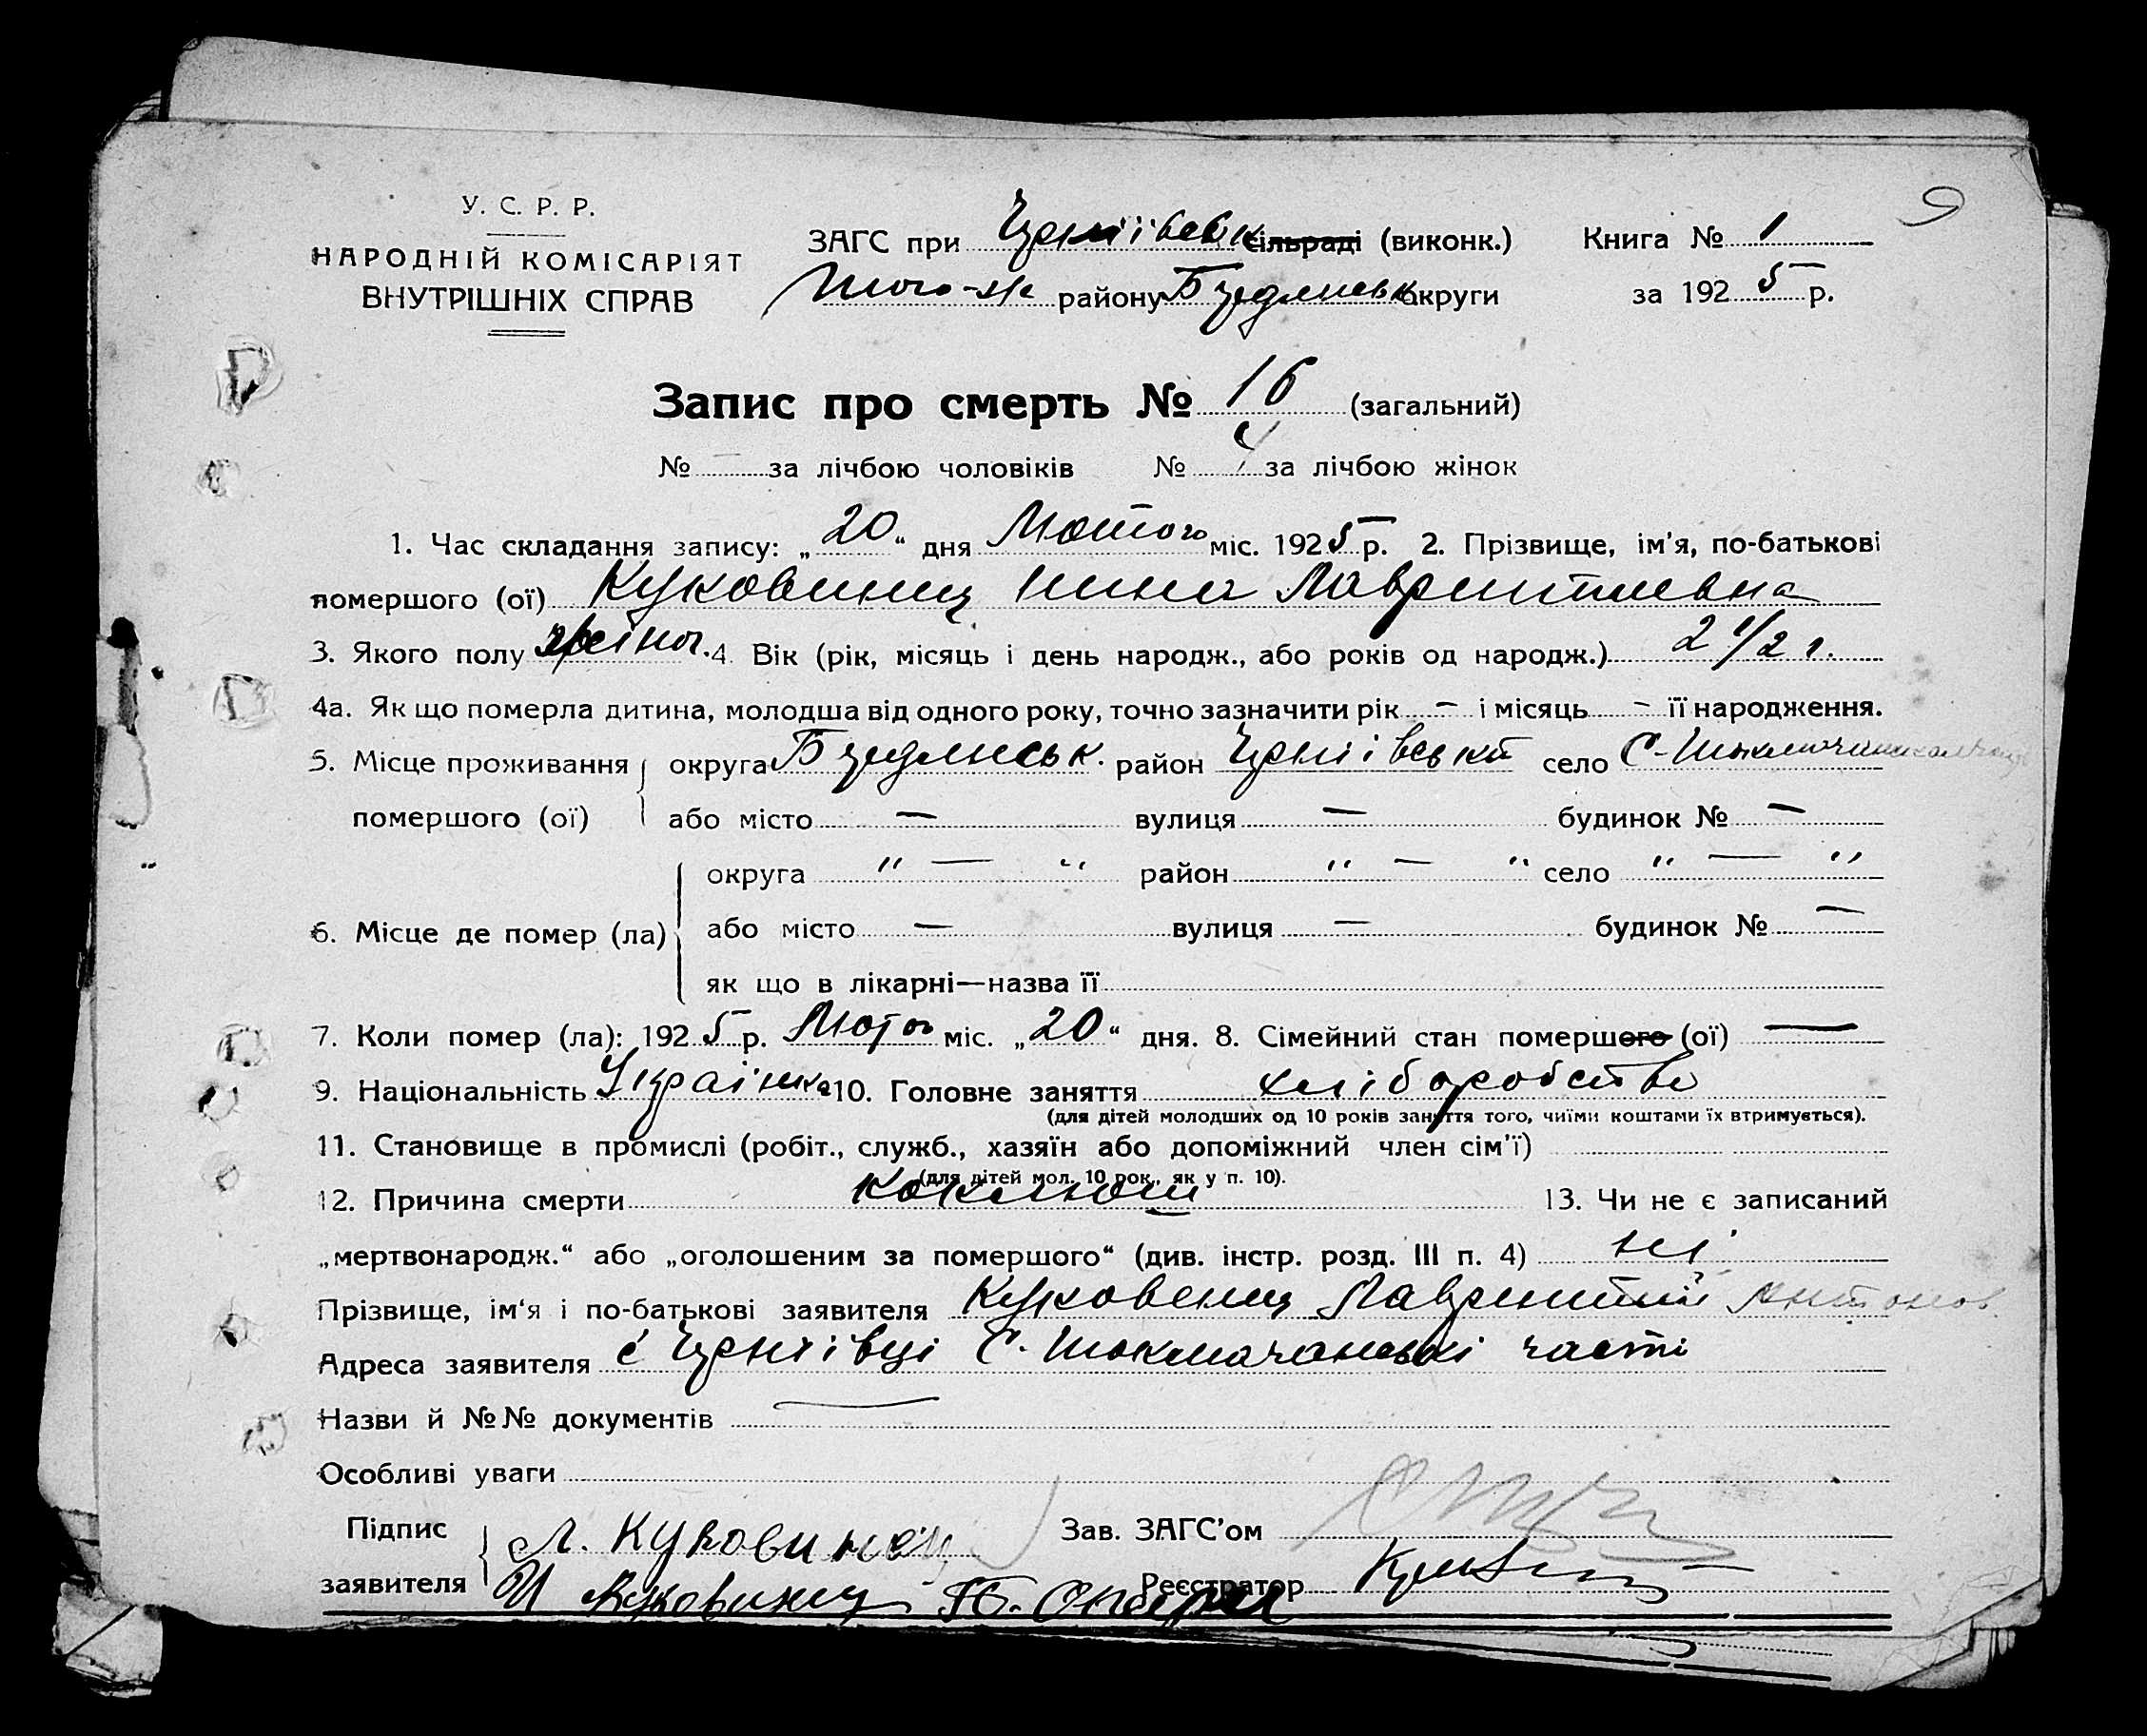 9
У. С. Р. Р.
НАРОДНІЙ КОМІСАРІЯТ
ВНУТРІШНІХ СПРАВ
ЗАГС при сільраді (виконк.) Книга № 1
того-ж району округи за 1925 р.
Запис про смерть № 16 (загальний)
№ — за лічбою чоловіків № 4 за лічбою жінок
1. Час складання запису: „20“ дня Лютого міс. 1925 р. 2. Прізвище, ім'я, по-батькові
помершого (ої) Куковинец Нина Лаврентиевна
3. Якого полу жіноч. 4. Вік (рік, місяць і день народж., або років од народж.) 2 1/2 г.
4а. Як що померла дитина, молодша від одного року, точно зазначити рік — і місяць — її народження.
5. Місце проживання округа район село
помершого (ої) або місто — вулиця — будинок № —
округа " — " район " — " село " — "
6. Місце де помер (ла) або місто — вулиця — будинок № —
як що в лікарні—назва її
7. Коли помер (ла): 1925 р. Лютого міс. „20“ дня. 8. Сімейний стан помершого (ої) —
9. Національність Українка 10. Головне заняття хліборобство
(для дітей молодших од 10 років заняття того, чиїми коштами їх втримується).
11. Становище в промислі (робіт., служб., хазяїн або допоміжний член сім'ї)
(для дітей мол. 10 рок., як у п. 10).
12. Причина смерти коклюш 13. Чи не є записаний
„мертвонародж.“ або „оголошеним за помершого“ (див. інстр. розд. III п. 4) ні
Прізвище, ім'я і по-батькові заявителя Куковенец Лаврентий Антонов.
Адреса заявителя с Чернівці части
Назви й №№ документів —
Особливі уваги
Підпис Л. Куковинец Зав. ЗАГС'ом
заявителя И Куковинец Реєстратор